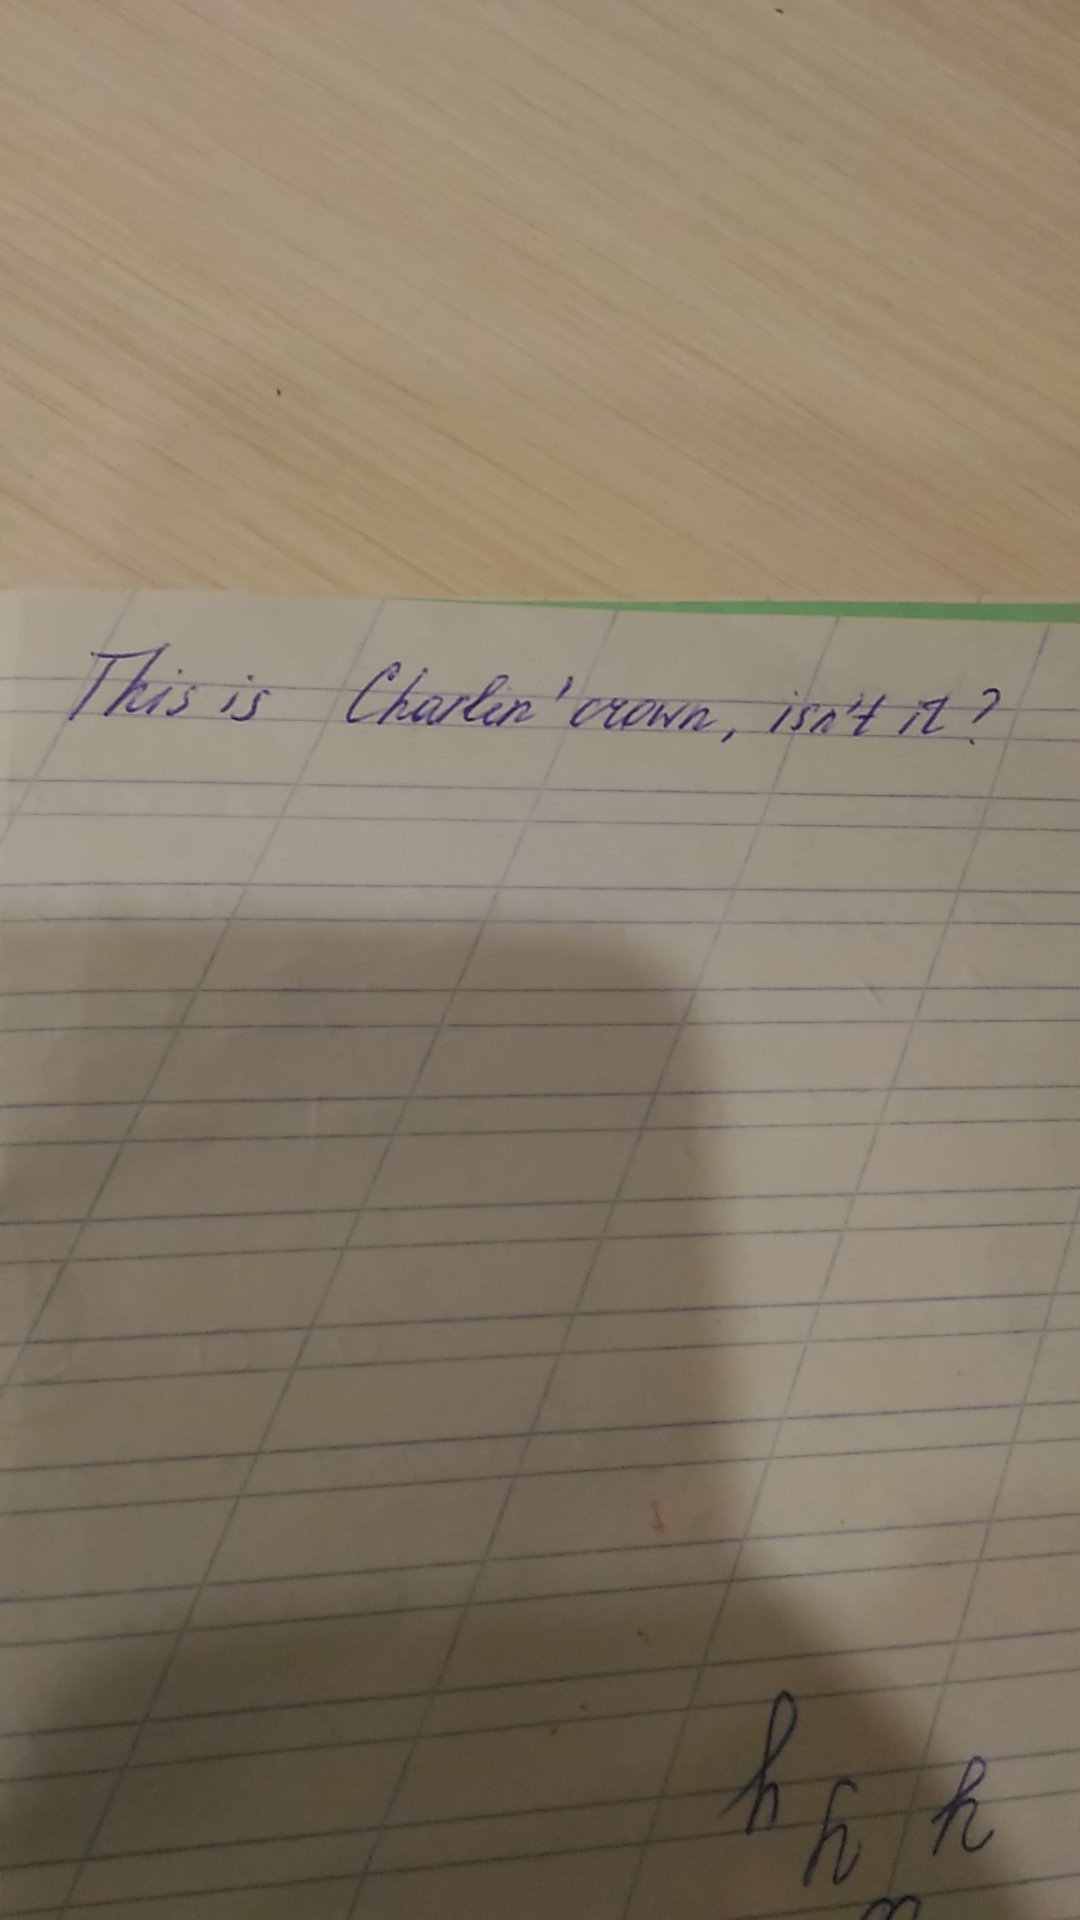 This is Charlin' crown, isn't it?
h h h